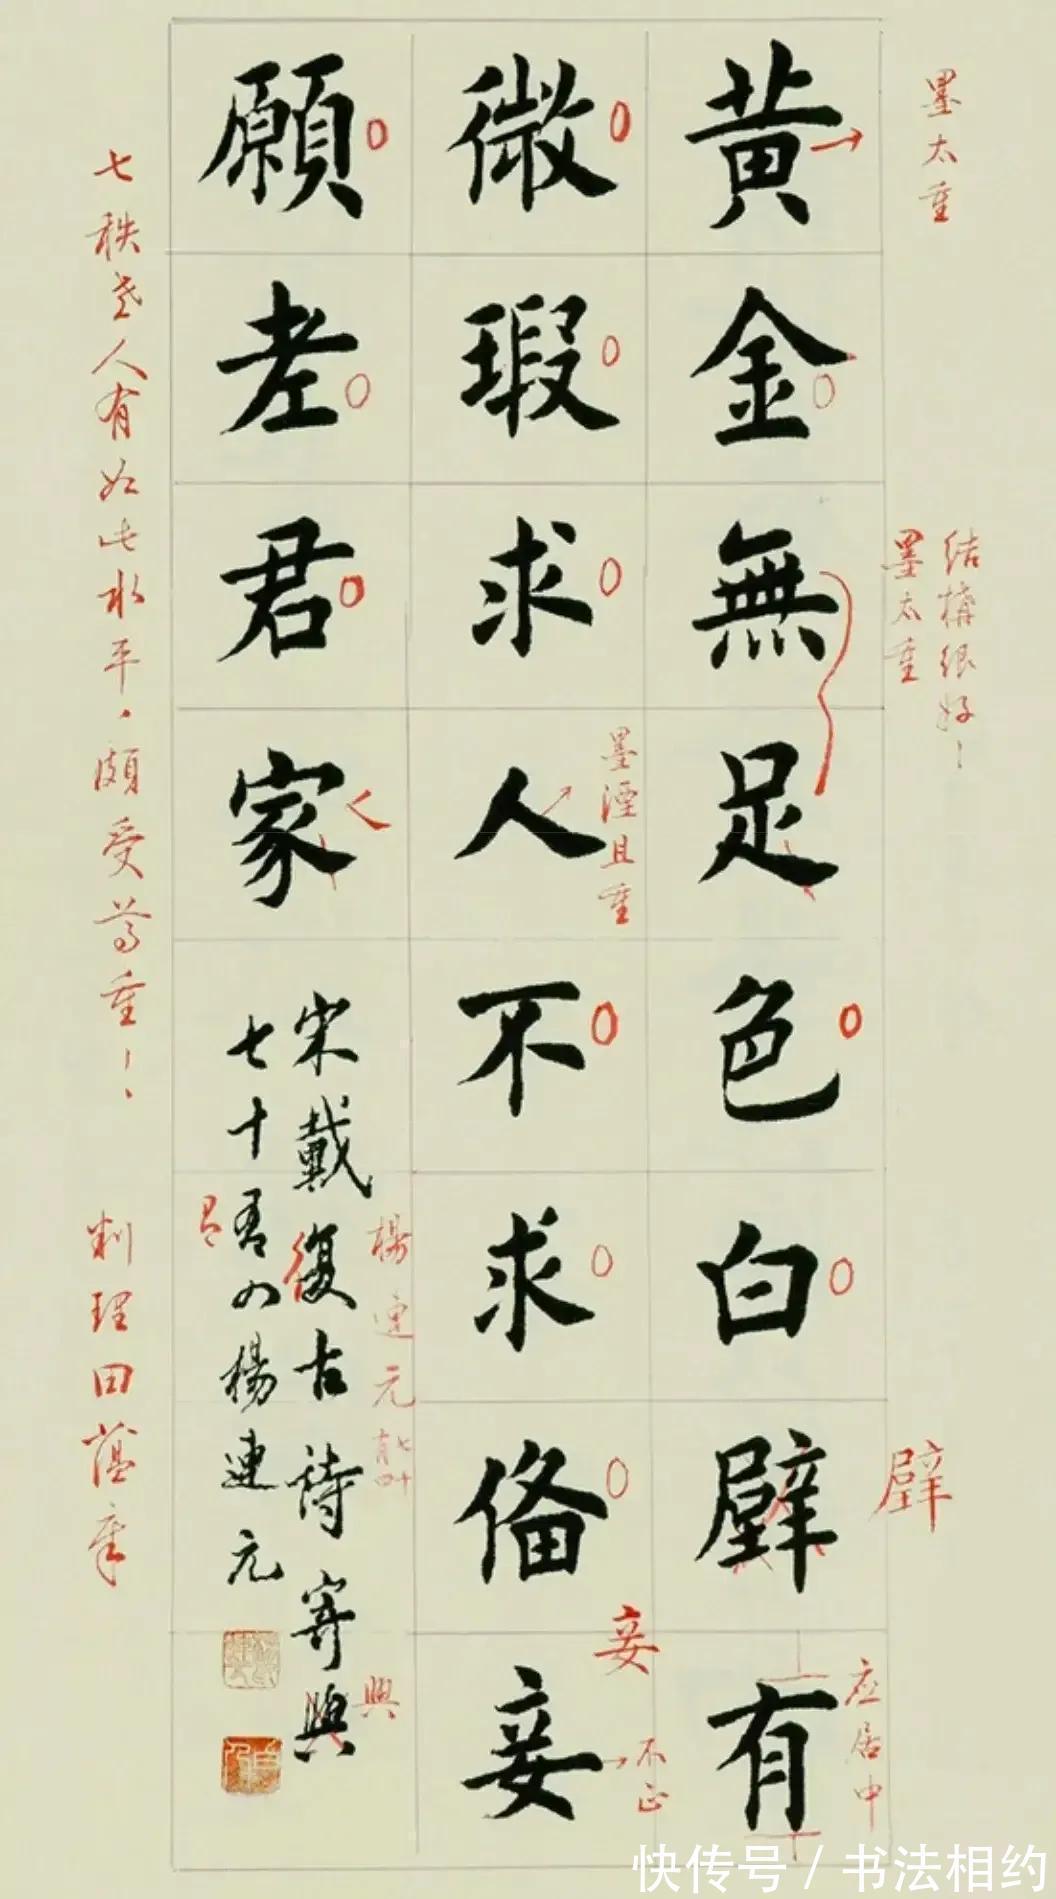 墨太重
結構很好！
墨太重
璧
应居中
黄金無足色白璧有
墨溼且重
妾
不正
微瑕求人不求俻妾
願老君家
楊連元
七十
有四
興
宋戴復古詩寄興
七十有四楊連元
有
七秩老人有如此水平，頗受尊重！！
判理田蕴章
快传号 / 书法相约